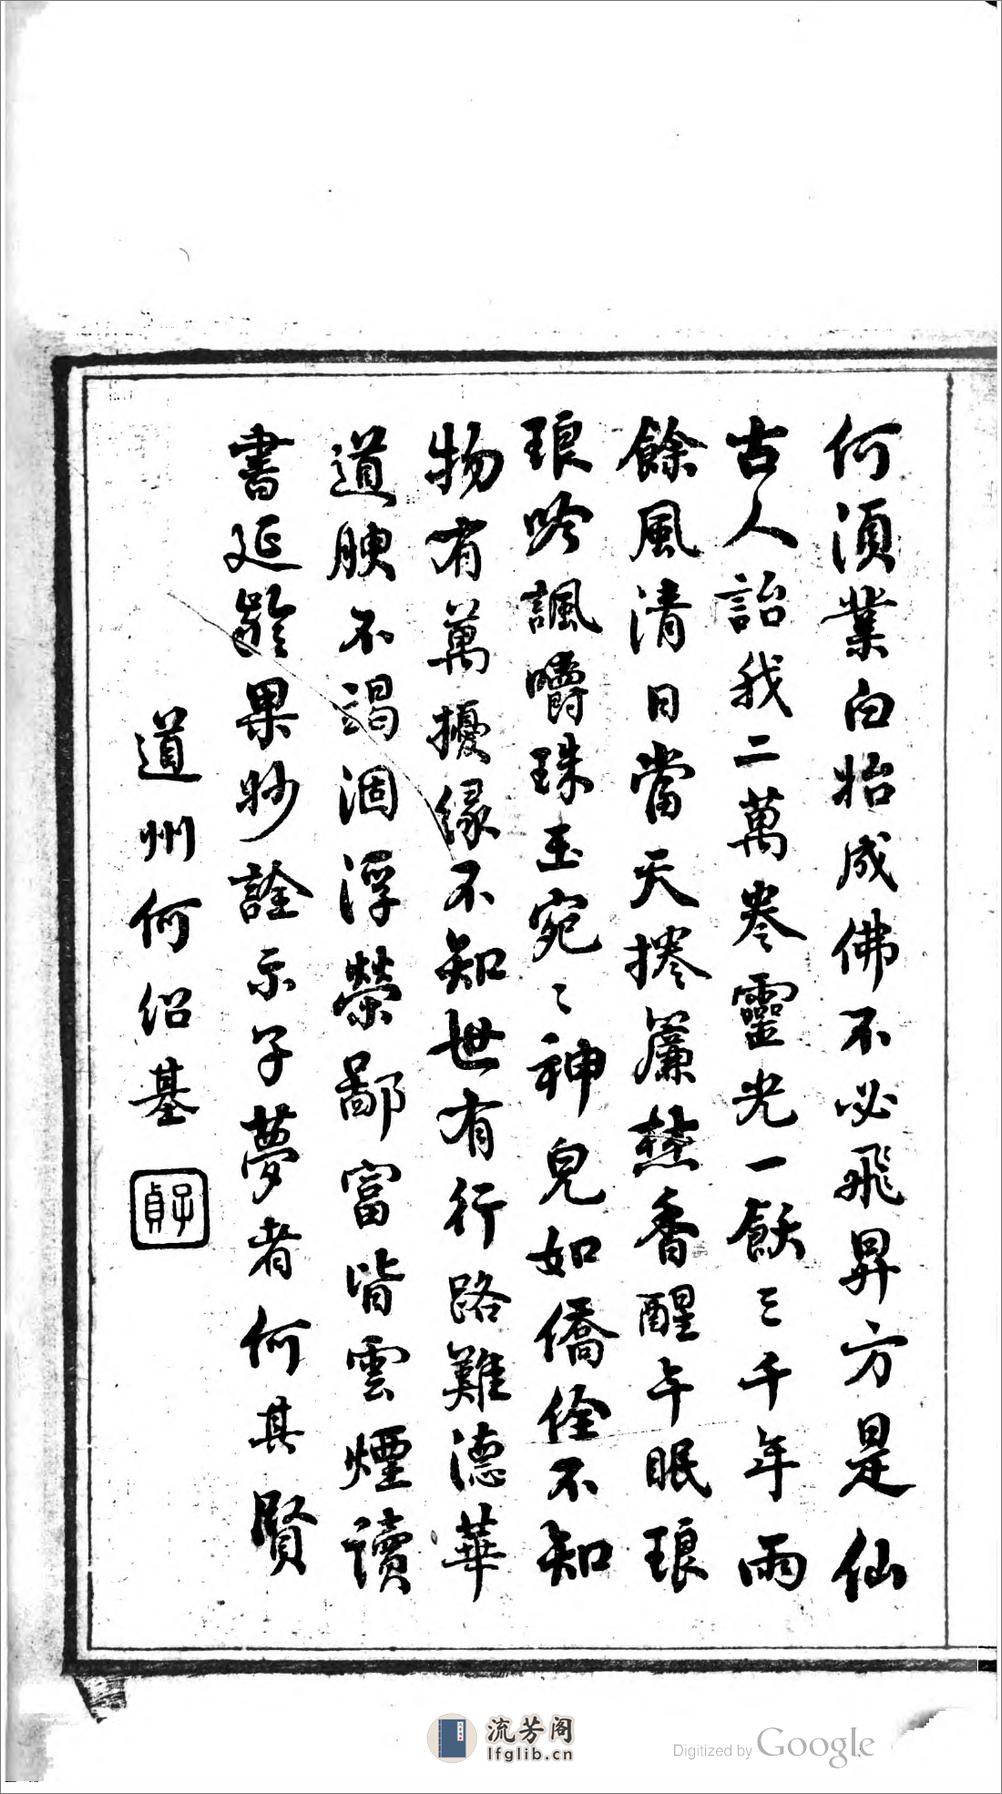 何須業白始成佛不必飛昇方是仙
古人詒我二萬卷靈光一飲三千年雨
餘風清日當天捲簾焚香醒午眠琅
琅吟諷嚼珠玉宛〻神皃如僑佺不知
物有萬擾緣不知世有行路難德華
道腴不竭涸浮榮鄙富皆雲煙讀
書延齡果妙詮示子夢者何其賢
道州何紹基
子貞
流芳阁
lfglib.cn
Digitized by Google